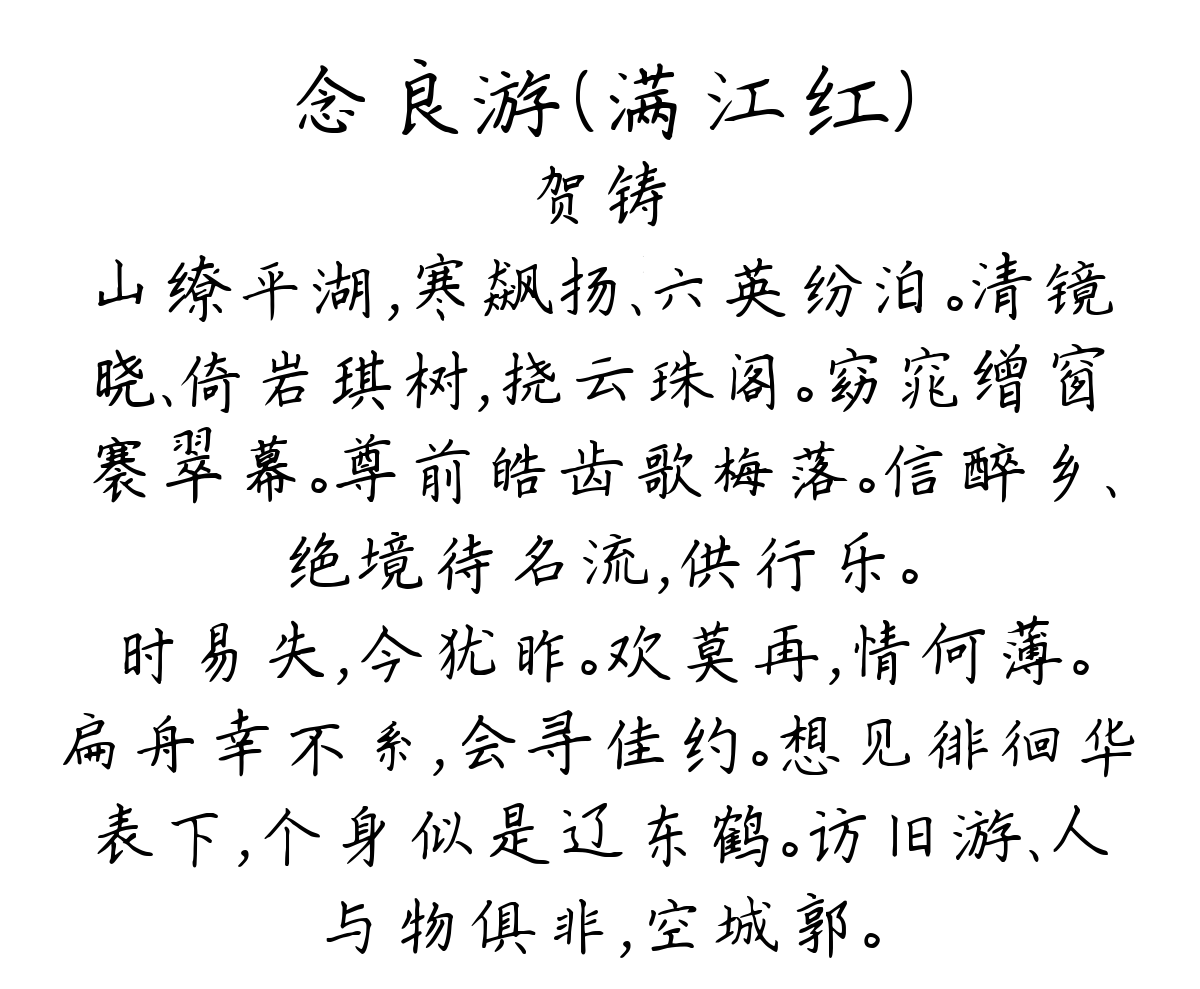 念良游(满江红)
贺铸
山缭平湖,寒飙扬、六英纷泊。清镜
晓、倚岩琪树,挠云珠阁。窈窕缯窗
褰翠幕。尊前皓齿歌梅落。信醉乡、
绝境待名流,供行乐。
时易失,今犹昨。欢莫再,情何薄。
扁舟幸不系,会寻佳约。想见徘徊华
表下,个身似是辽东鹤。访旧游、人
与物俱非,空城郭。